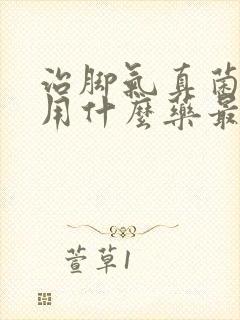 治脚氣真菌
用什麽藥最
萱草1